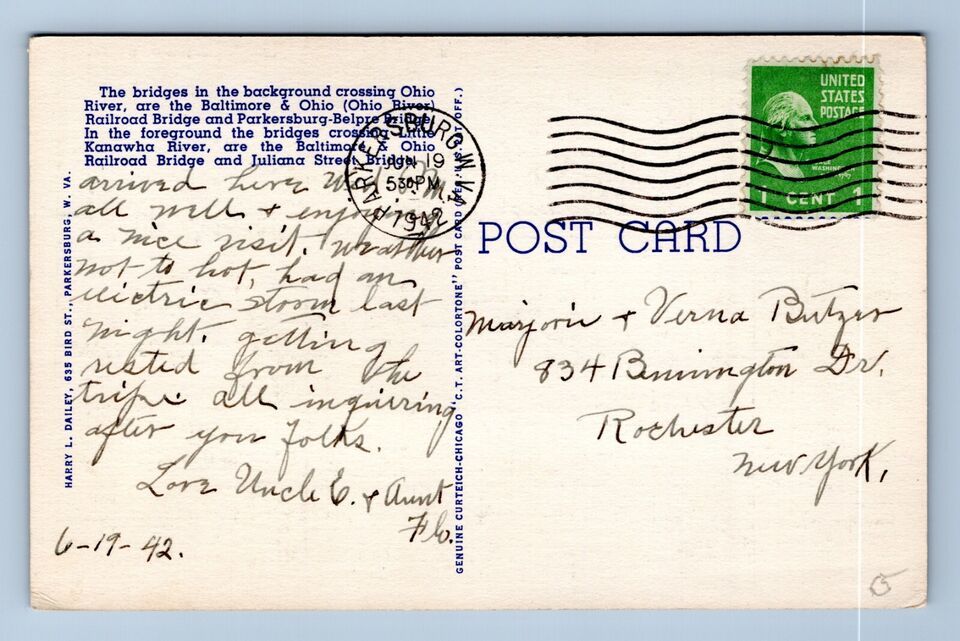 The bridges in the background crossing Ohio
River, are the Baltimore & Ohio (Ohio River)
Railroad Bridge and Parkersburg-Belpre Bridge.
In the foreground the bridges crossing Little
Kanawha River, are the Baltimore & Ohio
Railroad Bridge and Juliana Street Bridge.
arrived here Wed.
all well & enjoying
a nice visit. Weather
not to hot, had an
electric storm last
night. getting
rested from the
trip. all inquiring
after you folks.
Love Uncle E. & Aunt
Flo.
6-19-42.
HARRY L. DAILEY, 635 BIRD ST., PARKERSBURG, W. VA.
GENUINE CURTEICH-CHICAGO "C.T. ART-COLORTONE" POST CARD (REG. U.S. PAT. OFF.)
PARKERSBURG W.VA.
JUN 19
530PM
1942
UNITED
STATES
POSTAGE
WASHINGTON
1 CENT 1
POST CARD
Marjorie & Verna Butzer
834 Bennington Dr.
Rochester
New York.